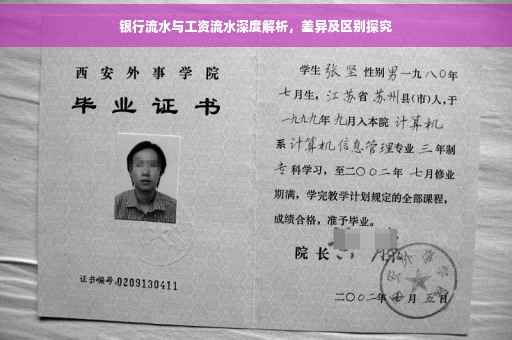 银行流水与工资流水深度解析，差异及区别探究
西安外事学院
毕业证书
证书编号:0209130411
学生 张坚 性别 男 一九八〇年
七月生，江苏省 苏州 县(市)人，于
一九九九年 九月入本院 计算机
系 计算机信息管理 专业 三 年制
专 科学习，至二〇〇二年 七月修业
期满，学完教学计划规定的全部课程，
成绩合格，准予毕业。
院长
二〇〇二年 月 五日